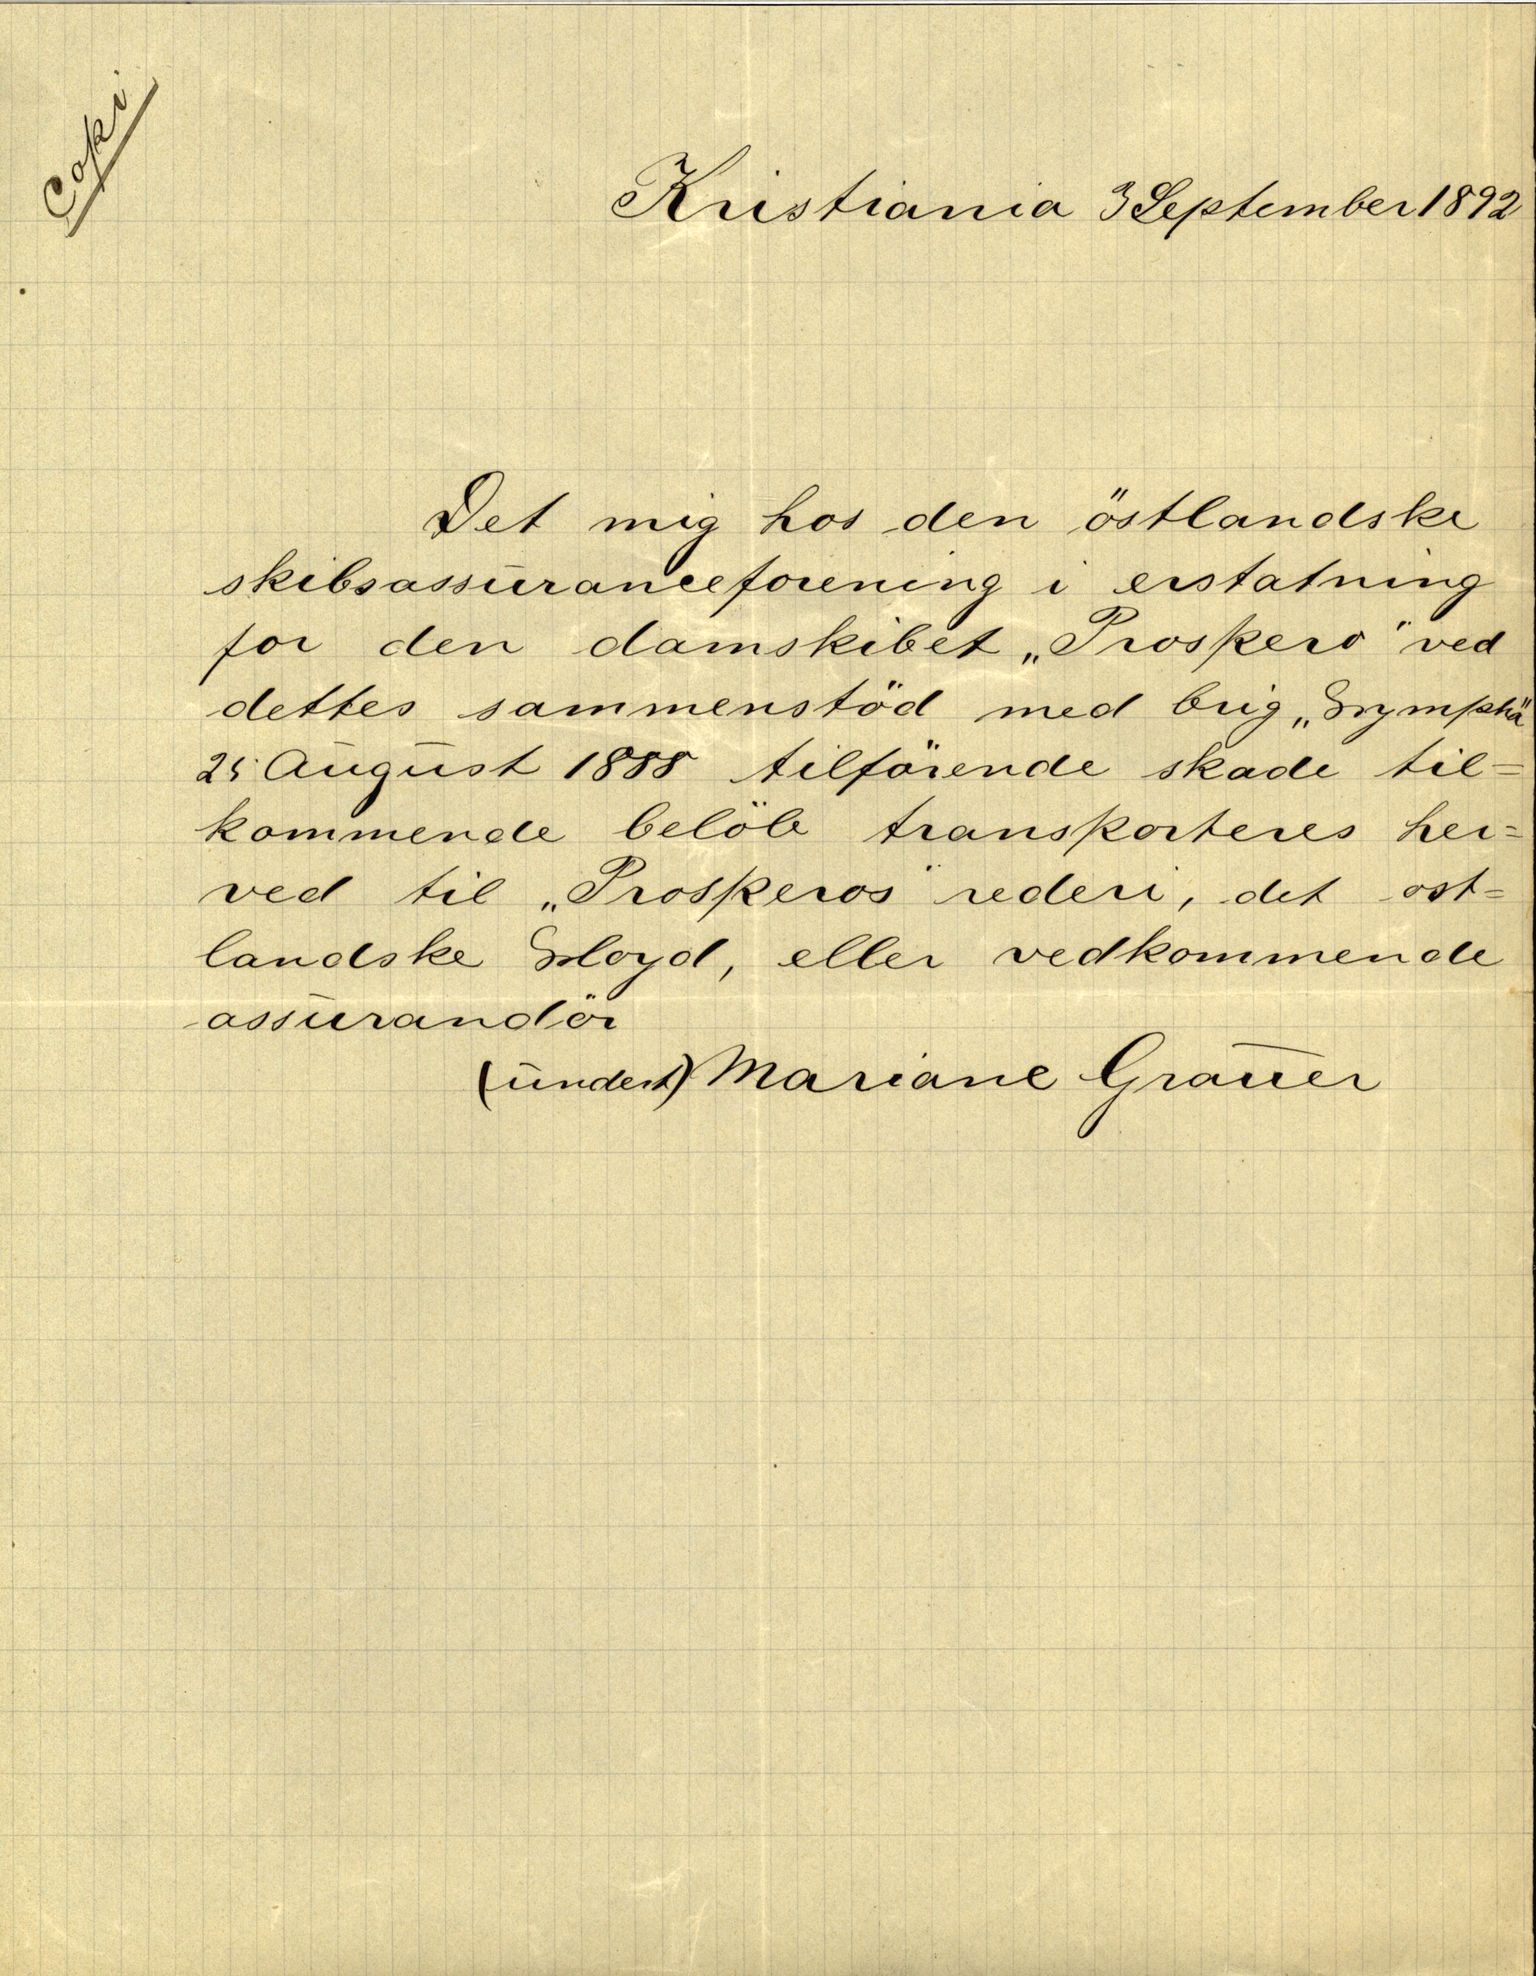 Copi
Kristiania 3 September 1892
Det mig hos den östlandske
skibsassuranceforening i erstatning
for den damskibet „Prospero" ved
dettes sammenstöd med brig „Nymphä"
25 August 1888 tilförende skade til=
kommende belöb transporteres her=
ved til „Prosperos" rederi, det ost=
landske Lloyd, eller vedkommende
assurandör
(undert) Mariane Grauer